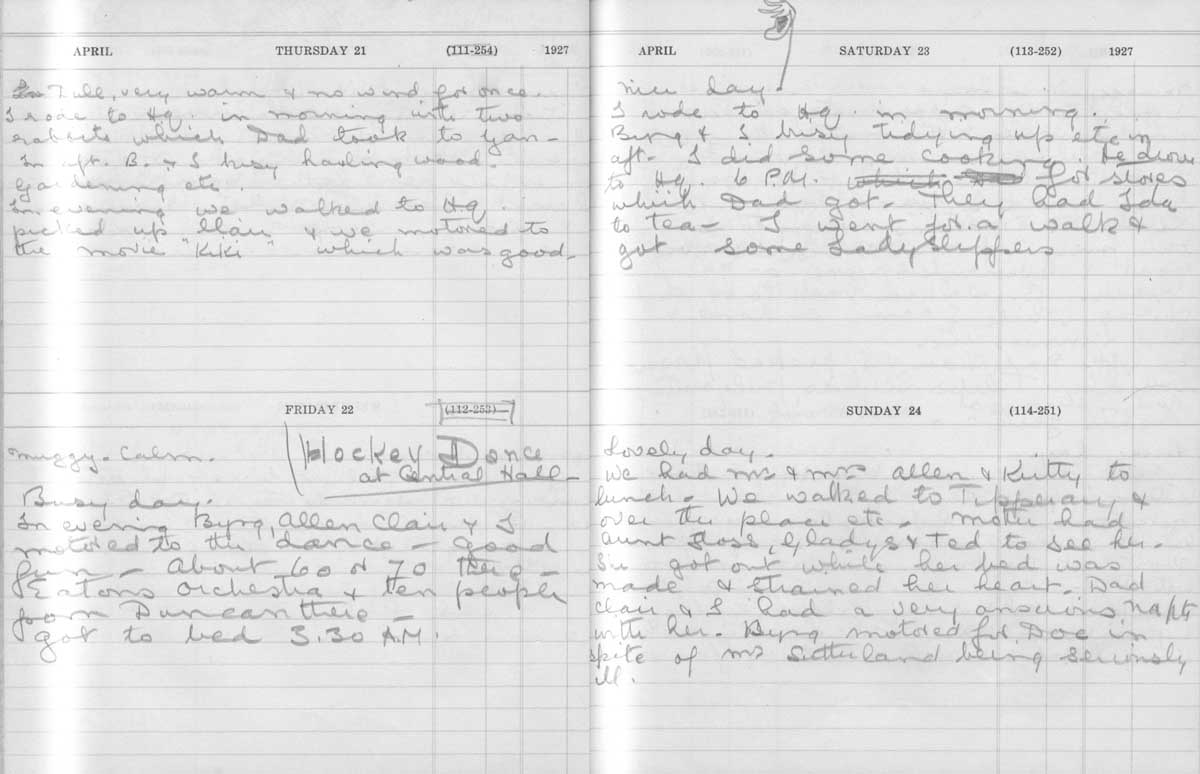 APRIL THURSDAY 21 (111-254) 1927
Dull, very warm & no wind for once.
I rode to Hq. in morning with two
rabbits which Dad took to
In aft. B. & I busy hauling wood -
Gardening etc.
In evening we walked to Hq.
picked up Clair & we motored to
the movie "KiKi" which was good -
FRIDAY 22 (112-253)
Muggy - Calm.
Hockey Dance
at Central Hall -
Busy day.
In evening Byng, Allen Clair & I
motored to the dance - good
fun - about 60 or 70 there -
Eatons orchestra & ten people
from Duncan there -
got to bed 3.30 A.M.
APRIL SATURDAY 23 (113-252) 1927
Nice day
I rode to Hq. in morning.
Byng & I busy tidying up etc in
aft - I did some cooking. He drove
to Hq. 6 P.M. which for stores
which Dad got - They had Ida
to tea - I went for a walk &
got some Lady Slippers
SUNDAY 24 (114-251)
Lovely day.
We had Mr & Mrs Allen & Kitty to
lunch - We walked to Tipperary &
over the place etc - Mother had
Aunt Floss, Gladys & Ted to see her -
got out while her bed was
made & strained her heart - Dad
Clair & I had a very anxious
with her. Byng motored for Doc in
spite of Mr Sutherland being seriously
ill.